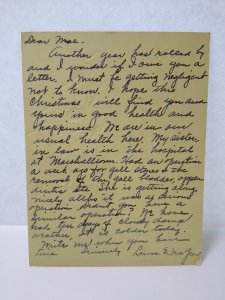 Dear Mae.
Another year has rolled by
and I wonder if I owe you a
letter. I must be getting negligent
not to know. I hope this
Christmas will find you and
yours in good health and
happiness. We are in our
usual health here. My sister
in law is in the hospital
at Marshalltown. Had an operation
a week ago for gall stones & the
removal of the gall bladder appen-
dicitis etc she is getting along
nicely altho it was a serious
operation. Didn't you have a
similar operation? We have
had ten days of cloudy damp
weather. It is colder today.
Write me when you have
time Sincerely